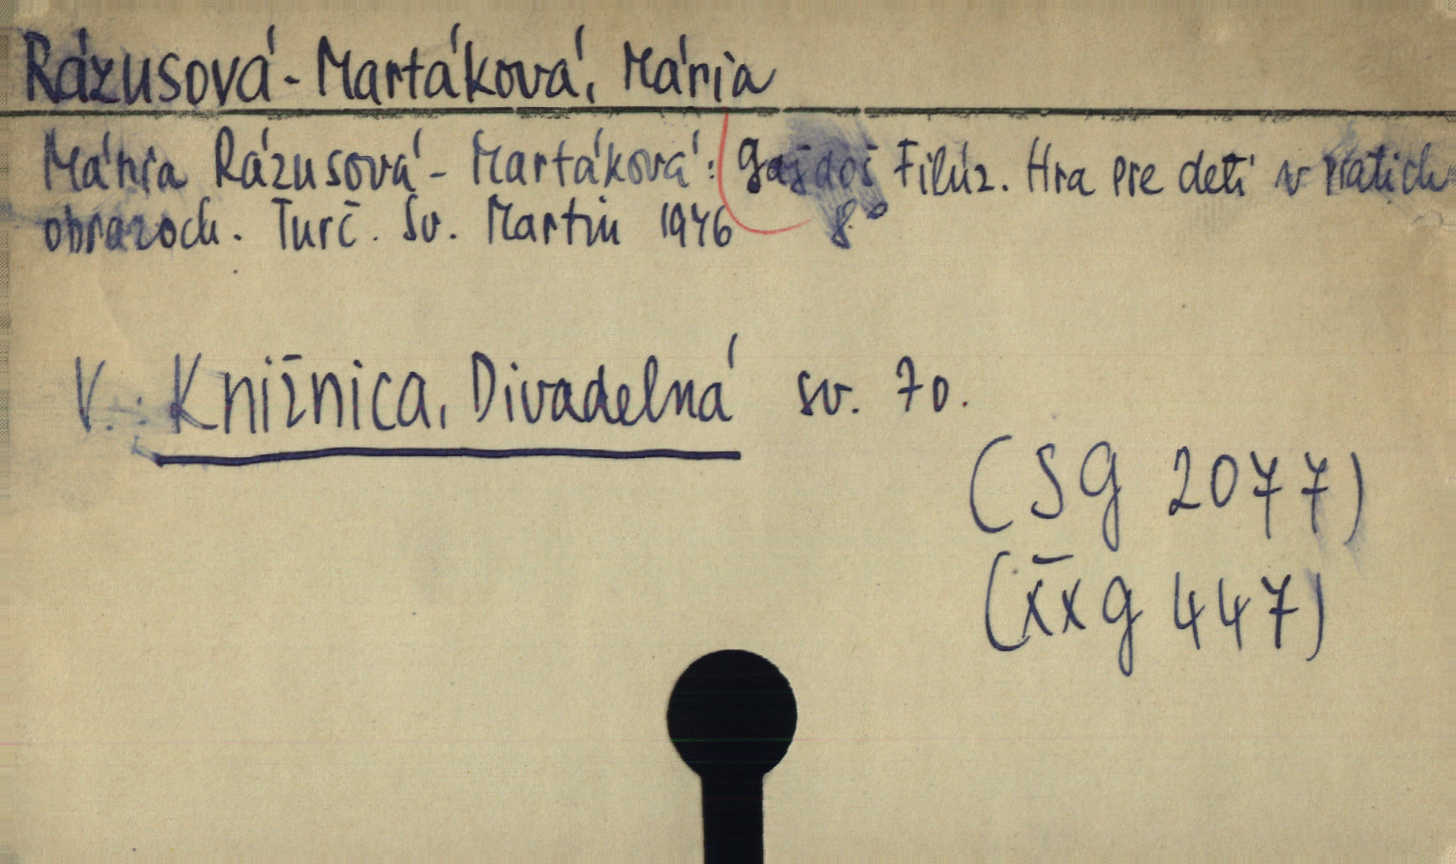 Rázusová-Martáková, Mária
Mária Rázusová-Martáková: Gajdoš Filúz. Hra pre deti v piatich
obrazoch. Turč. Sv. Martin 1946 8°
V.: Knižnica, Divadelná sv. 70.
(SG 2077)
(XXG 447)